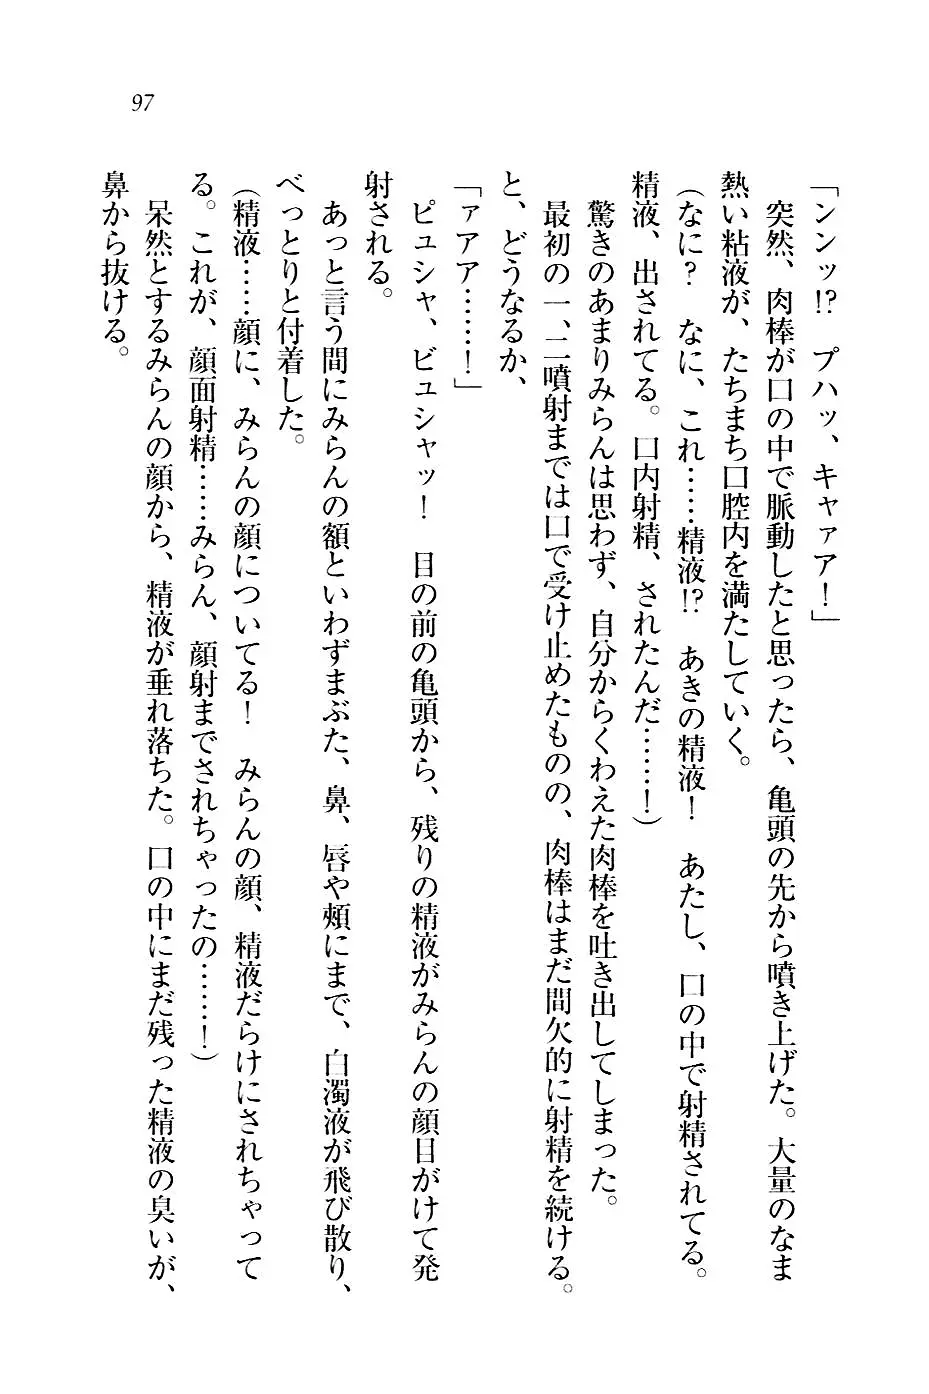 97
「ンンッ!? プハッ、キャァア！」
突然、肉棒が口の中で脈動したと思ったら、亀頭の先から噴き上げた。大量のなま
熱い粘液が、たちまち口腔内を満たしていく。
（なに？ なに、これ……精液!? あきの精液！ あたし、口の中で射精されてる。
精液、出されてる。口内射精、されたんだ……！）
驚きのあまりみらんは思わず、自分からくわえた肉棒を吐き出してしまった。
最初の一、二噴射までは口で受け止めたものの、肉棒はまだ間欠的に射精を続ける。
と、どうなるか、
「ァアア……！」
ピュシャ、ビュシャッ！ 目の前の亀頭から、残りの精液がみらんの顔目がけて発
射される。
あっと言う間にみらんの額といわずまぶた、鼻、唇や頬にまで、白濁液が飛び散り、
べっとりと付着した。
（精液……顔に、みらんの顔についてる！ みらんの顔、精液だらけにされちゃって
る。これが、顔面射精……みらん、顔射までされちゃったの……！）
呆然とするみらんの顔から、精液が垂れ落ちた。口の中にまだ残った精液の臭いが、
鼻から抜ける。